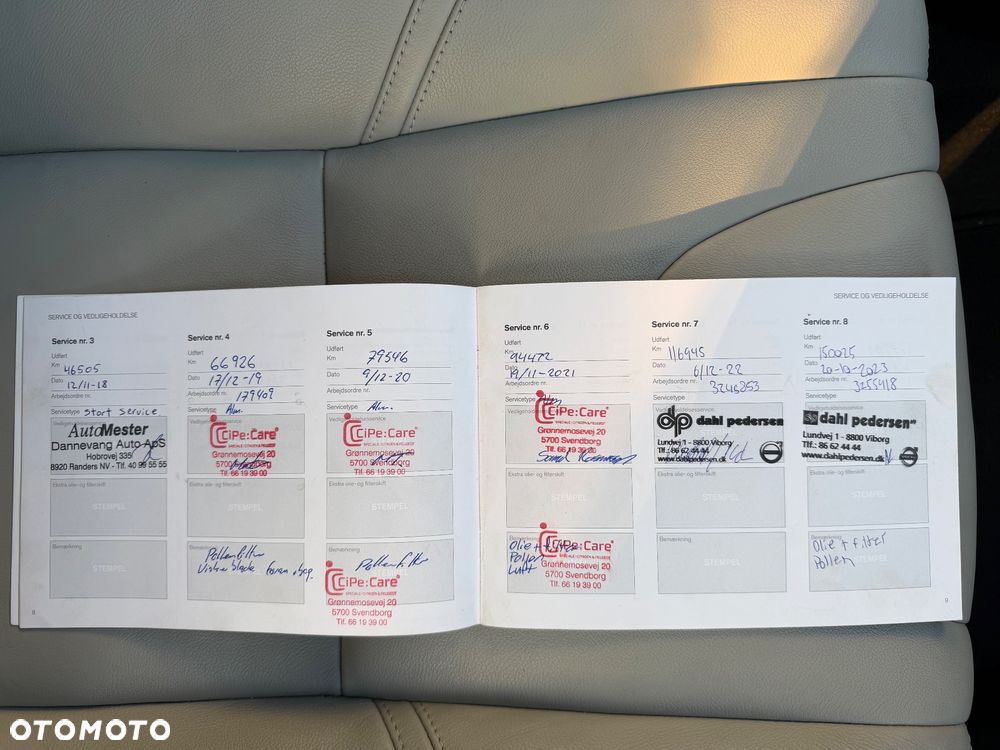 SERVICE OG VEDLIGEHOLDELSE
Service nr. 3
Udført
Km 46505
Dato 12/11-18
Arbejdsordre nr.
Servicetype Stort service
AutoMester
Dannevang Auto ApS
Hobrovej 335
8920 Randers NV - Tlf. 40 99 55 55
Ekstra olie- og filterskift
STEMPEL
Bemærkning
STEMPEL
8
Service nr. 4
Udført
Km 66926
Dato 17/12-19
Arbejdsordre nr. 179409
Servicetype Alm.
CiPe:Care
SPECIALE I CITROËN & PEUGEOT
Grønnemosevej 20
5700 Svendborg
Tlf. 66 19 39 00
Ekstra olie- og filterskift
STEMPEL
Bemærkning
Pollenfilter
Service nr. 5
Udført
Km 79546
Dato 9/12-20
Arbejdsordre nr.
Servicetype Alm.
CiPe:Care
SPECIALE I CITROËN & PEUGEOT
Grønnemosevej 20
5700 Svendborg
Tlf. 66 19 39 00
Ekstra olie- og filterskift
STEMPEL
Bemærkning
Pollenfilter
CiPe:Care
SPECIALE I CITROËN & PEUGEOT
Grønnemosevej 20
5700 Svendborg
Tlf. 66 19 39 00
SERVICE OG VEDLIGEHOLDELSE
Service nr. 6
Udført
Km 94472
Dato 19/11-2021
Arbejdsordre nr.
Servicetype Alm
CiPe:Care
SPECIALE I CITROËN & PEUGEOT
Grønnemosevej 20
5700 Svendborg
Tlf. 66 19 39 00
Ekstra olie- og filterskift
STEMPEL
Bemærkning
Olie + filter
Pollen
Luft
CiPe:Care
SPECIALE I CITROËN & PEUGEOT
Grønnemosevej 20
5700 Svendborg
Tlf. 66 19 39 00
Service nr. 7
Udført
Km 116945
Dato 6/12-22
Arbejdsordre nr. 3246253
Servicetype
dp dahl pedersen
Lundvej 1 - 8800 Viborg
Tlf.: 86 62 44 44
www.dahlpedersen.dk
Ekstra olie- og filterskift
STEMPEL
Bemærkning
STEMPEL
Service nr. 8
Udført
Km 150025
Dato 20-10-2023
Arbejdsordre nr. 3255418
Servicetype
dahl pedersen
Lundvej 1 - 8800 Viborg
Tlf.: 86 62 44 44
www.dahlpedersen.dk
Ekstra olie- og filterskift
STEMPEL
Bemærkning
Olie + filter
Pollen
9
OTOMOTO